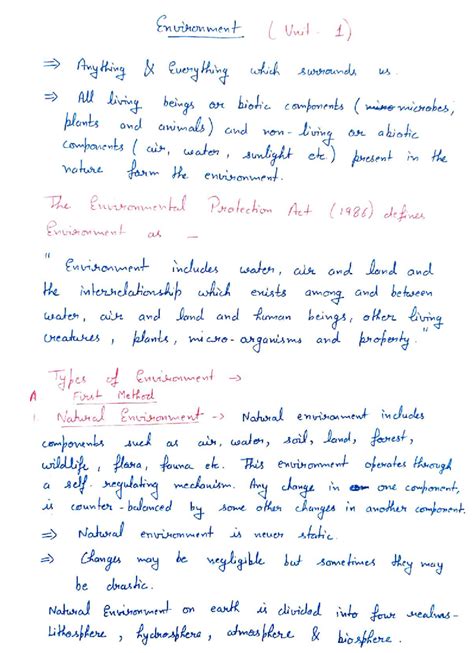 Environment ( Unit - 1 )
⇒ Anything & Everything which surrounds us.
⇒ All living beings or biotic components ( microbes,
plants and animals) and non-living or abiotic
components ( air, water, sunlight etc) present in the
nature form the environment.
The Environmental Protection Act (1986) defines
Environment as —
" Environment includes water, air and land and
the interrelationship which exists among and between
water, air and land and human beings, other living
creatures, plants, micro-organisms and property."
Types of Environment →
A First Method
1. Natural Environment -> Natural environment includes
components such as air, water, soil, land, forest,
wildlife, flora, fauna etc. This environment operates through
a self-regulating mechanism. Any change in one component,
is counter-balanced by some other changes in another component.
⇒ Natural environment is never static.
⇒ Changes may be negligible but sometimes they may
be drastic.
Natural Environment on earth is divided into four realms-
Lithosphere, hydrosphere, atmosphere & biosphere.